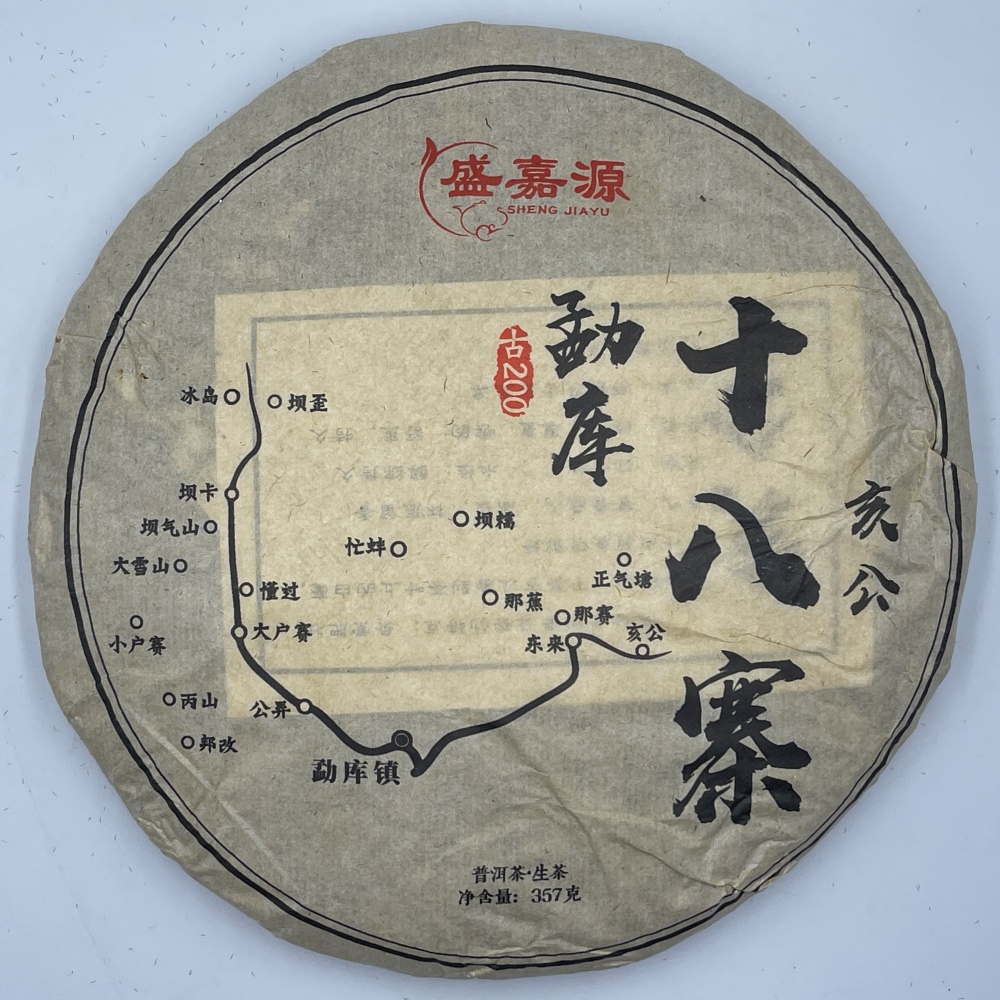 盛嘉源
SHENG JIAYU
勐库
十八寨
古200
亥公
冰岛
坝歪
坝卡
坝气山
坝糯
忙蚌
大雪山
正气塘
懂过
那蕉
那赛
大户赛
小户赛
东来
亥公
丙山
公弄
邦改
勐库镇
普洱茶·生茶
净含量：357克